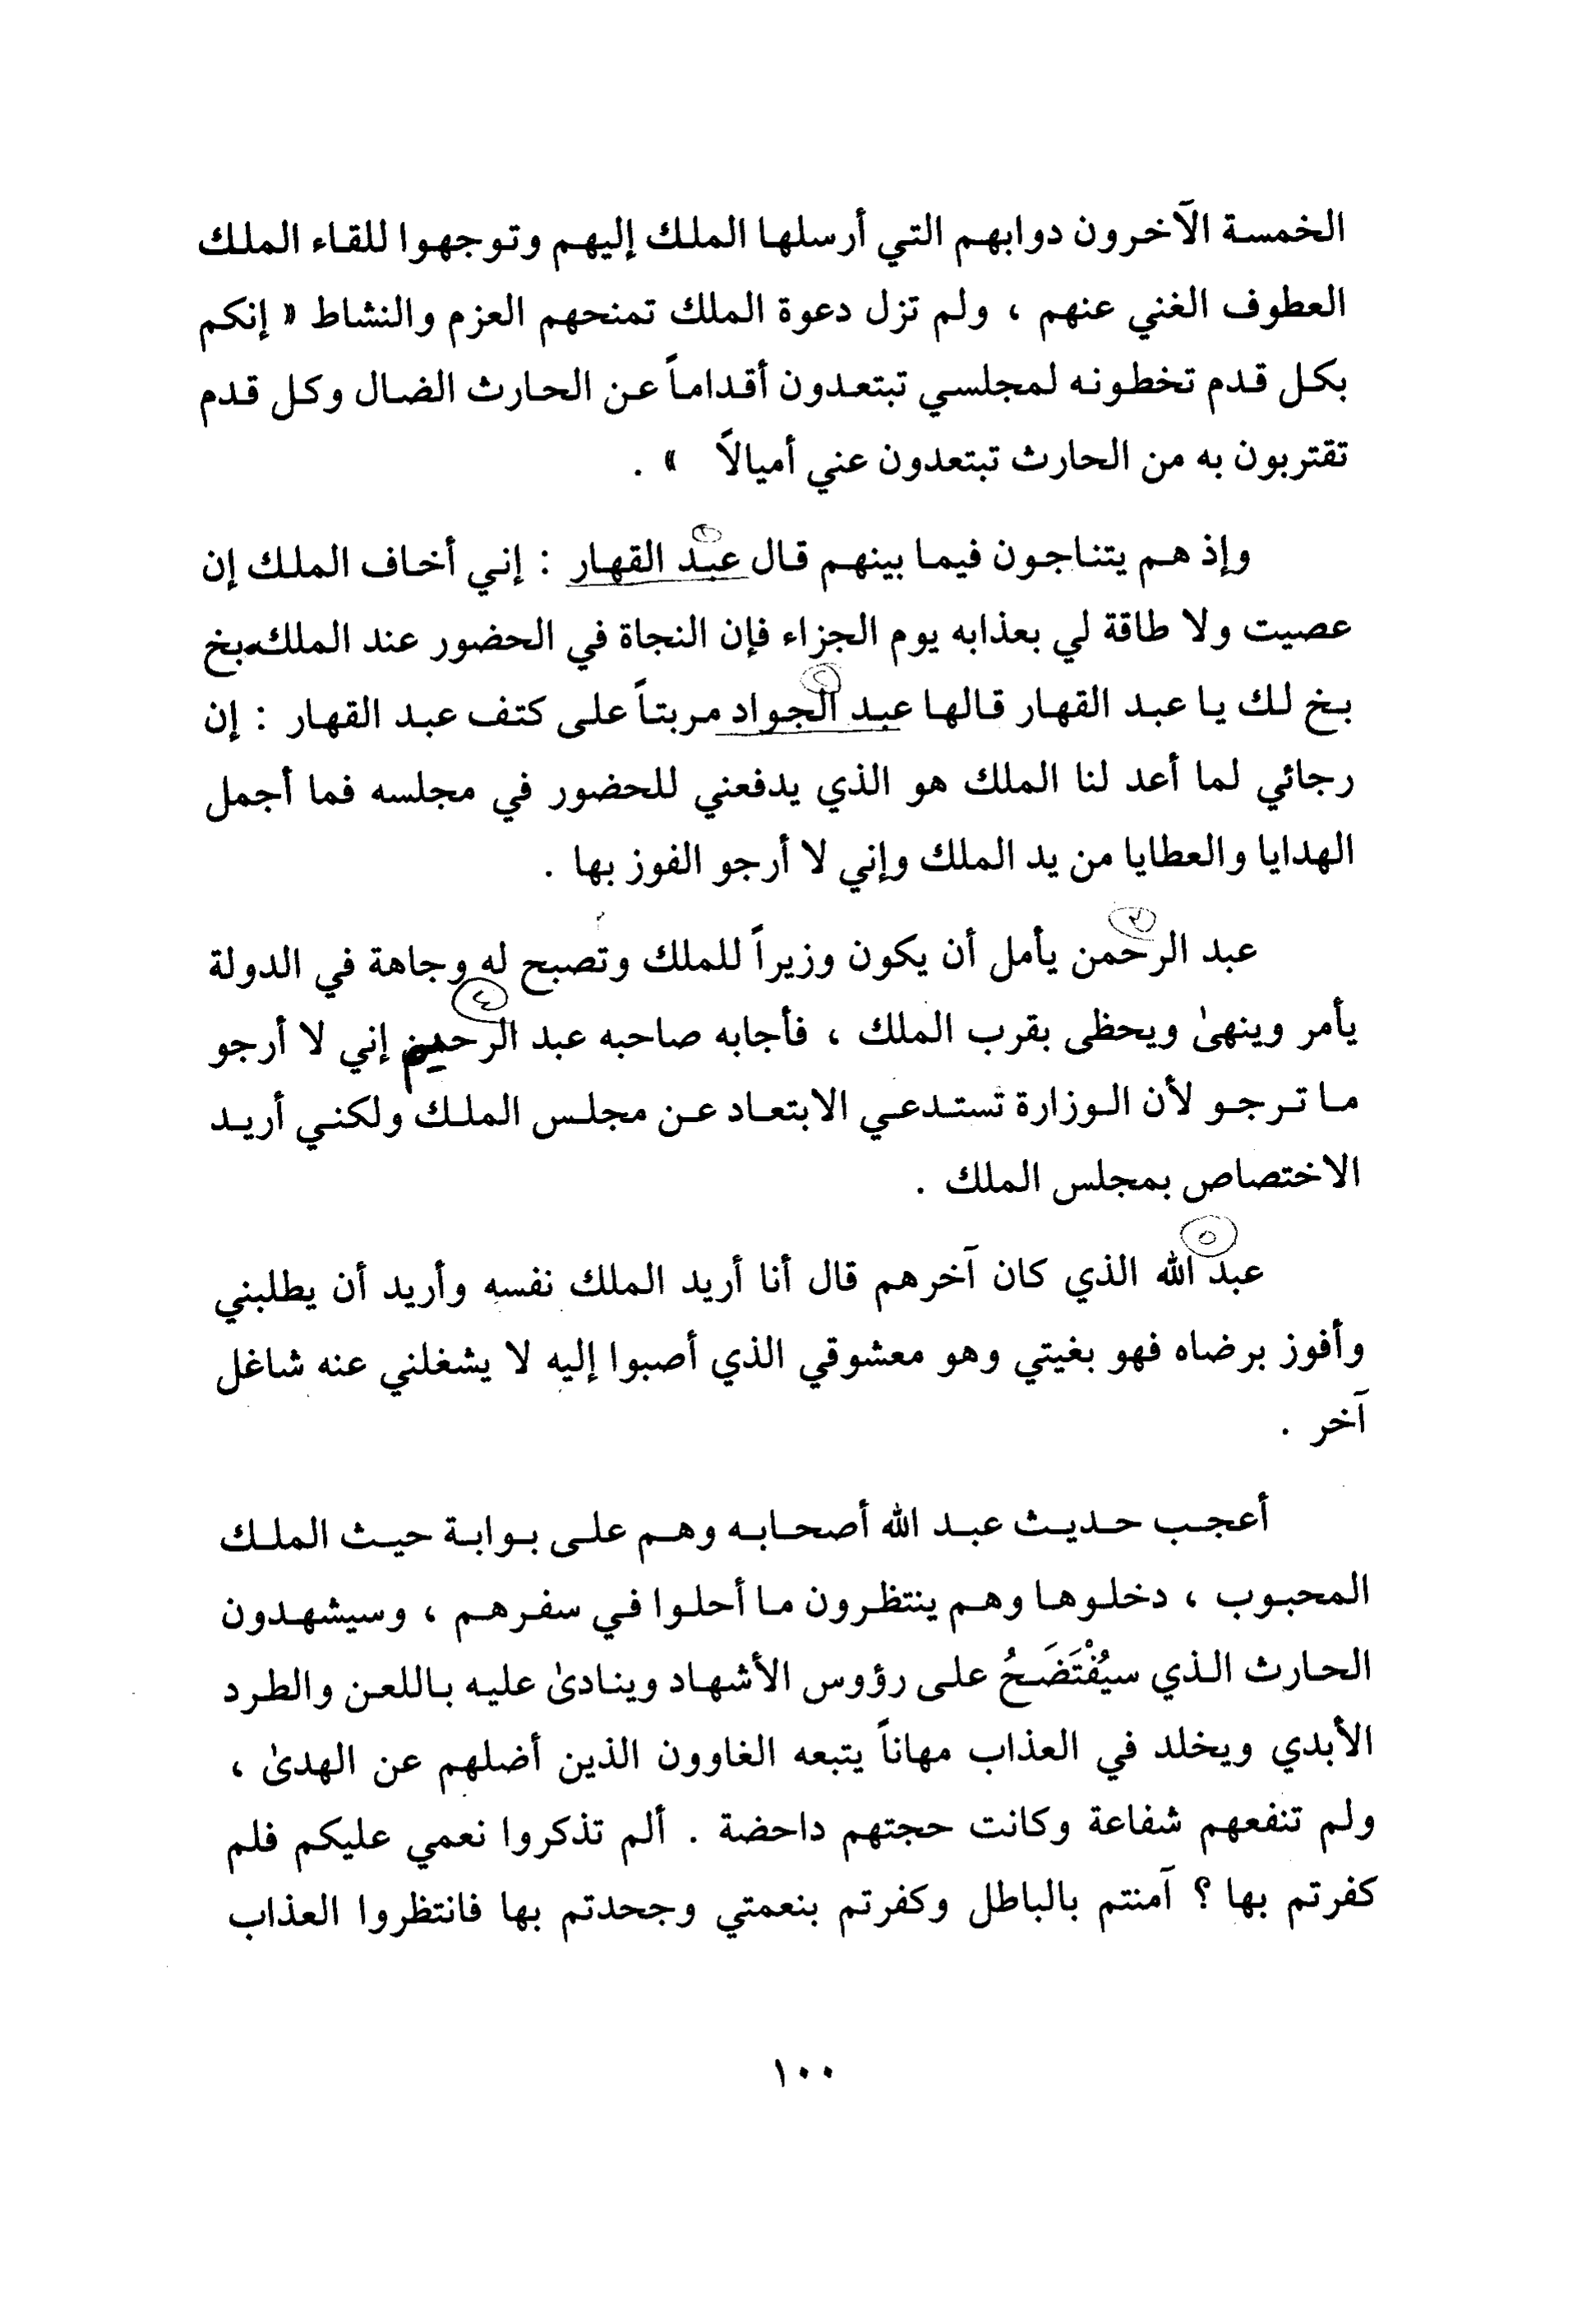 الخمسة الآخرون دوابهم التي أرسلها الملك إليهم وتوجهوا للقاء الملك
العطوف الغني عنهم ، ولم تزل دعوة الملك تمنحهم العزم والنشاط « إنكم
بكل قدم تخطونه لمجلسي تبتعدون أقداماً عن الحارث الضال وكل قدم
تقتربون به من الحارث تبتعدون عني أميالاً » .
وإذ هم يتناجون فيما بينهم قال عبد القهار : إني أخاف الملك إن
عصيت ولا طاقة لي بعذابه يوم الجزاء فإن النجاة في الحضور عند الملك.بخ
بخ لك يا عبد القهار قالها عبد الجواد مربتاً على كتف عبد القهار : إن
رجائي لما أعد لنا الملك هو الذي يدفعني للحضور في مجلسه فما أجمل
الهدايا والعطايا من يد الملك وإني لا أرجو الفوز بها .
٢
عبد الرحمن يأمل أن يكون وزيراً للملك وتصبح له وجاهة في الدولة
٤
يأمر وينهىٰ ويحظى بقرب الملك ، فأجابه صاحبه عبد الرحيم إني لا أرجو
ما ترجو لأن الوزارة تستدعي الابتعاد عن مجلس الملك ولكني أريد
الاختصاص بمجلس الملك .
٥
عبد الله الذي كان آخرهم قال أنا أريد الملك نفسه وأريد أن يطلبني
وأفوز برضاه فهو بغيتي وهو معشوقي الذي أصبوا إليه لا يشغلني عنه شاغل
آخر .
أعجب حديث عبد الله أصحابه وهم على بوابة حيث الملك
المحبوب ، دخلوها وهم ينتظرون ما أحلوا في سفرهم ، وسيشهدون
الحارث الذي سيُفْتَضَحُ على رؤوس الأشهاد وينادىٰ عليه باللعن والطرد
الأبدي ويخلد في العذاب مهاناً يتبعه الغاوون الذين أضلهم عن الهدىٰ ،
ولم تنفعهم شفاعة وكانت حجتهم داحضة . ألم تذكروا نعمي عليكم فلم
كفرتم بها ؟ آمنتم بالباطل وكفرتم بنعمتي وجحدتم بها فانتظروا العذاب
١٠٠